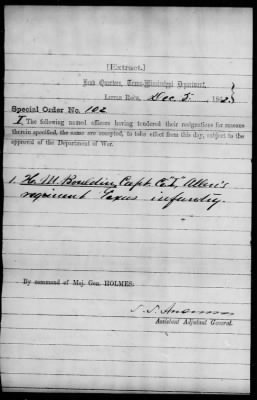 [Extract.]
Head Quarters, Trans-Mississippi Department,
Little Rock, Dec 5, 1862.
Special Order No. 102
I The following named officers having tendered their resignations for reasons
therein specified, the same are accepted, to take effect from this day, subject to the
approval of the Department of War.
1. H. M. Bouldin, Capt. Co. Allen's
regiment Texas infantry.
By command of Maj. Gen. HOLMES.
S. S. Anderson
Assistant Adjutant General.